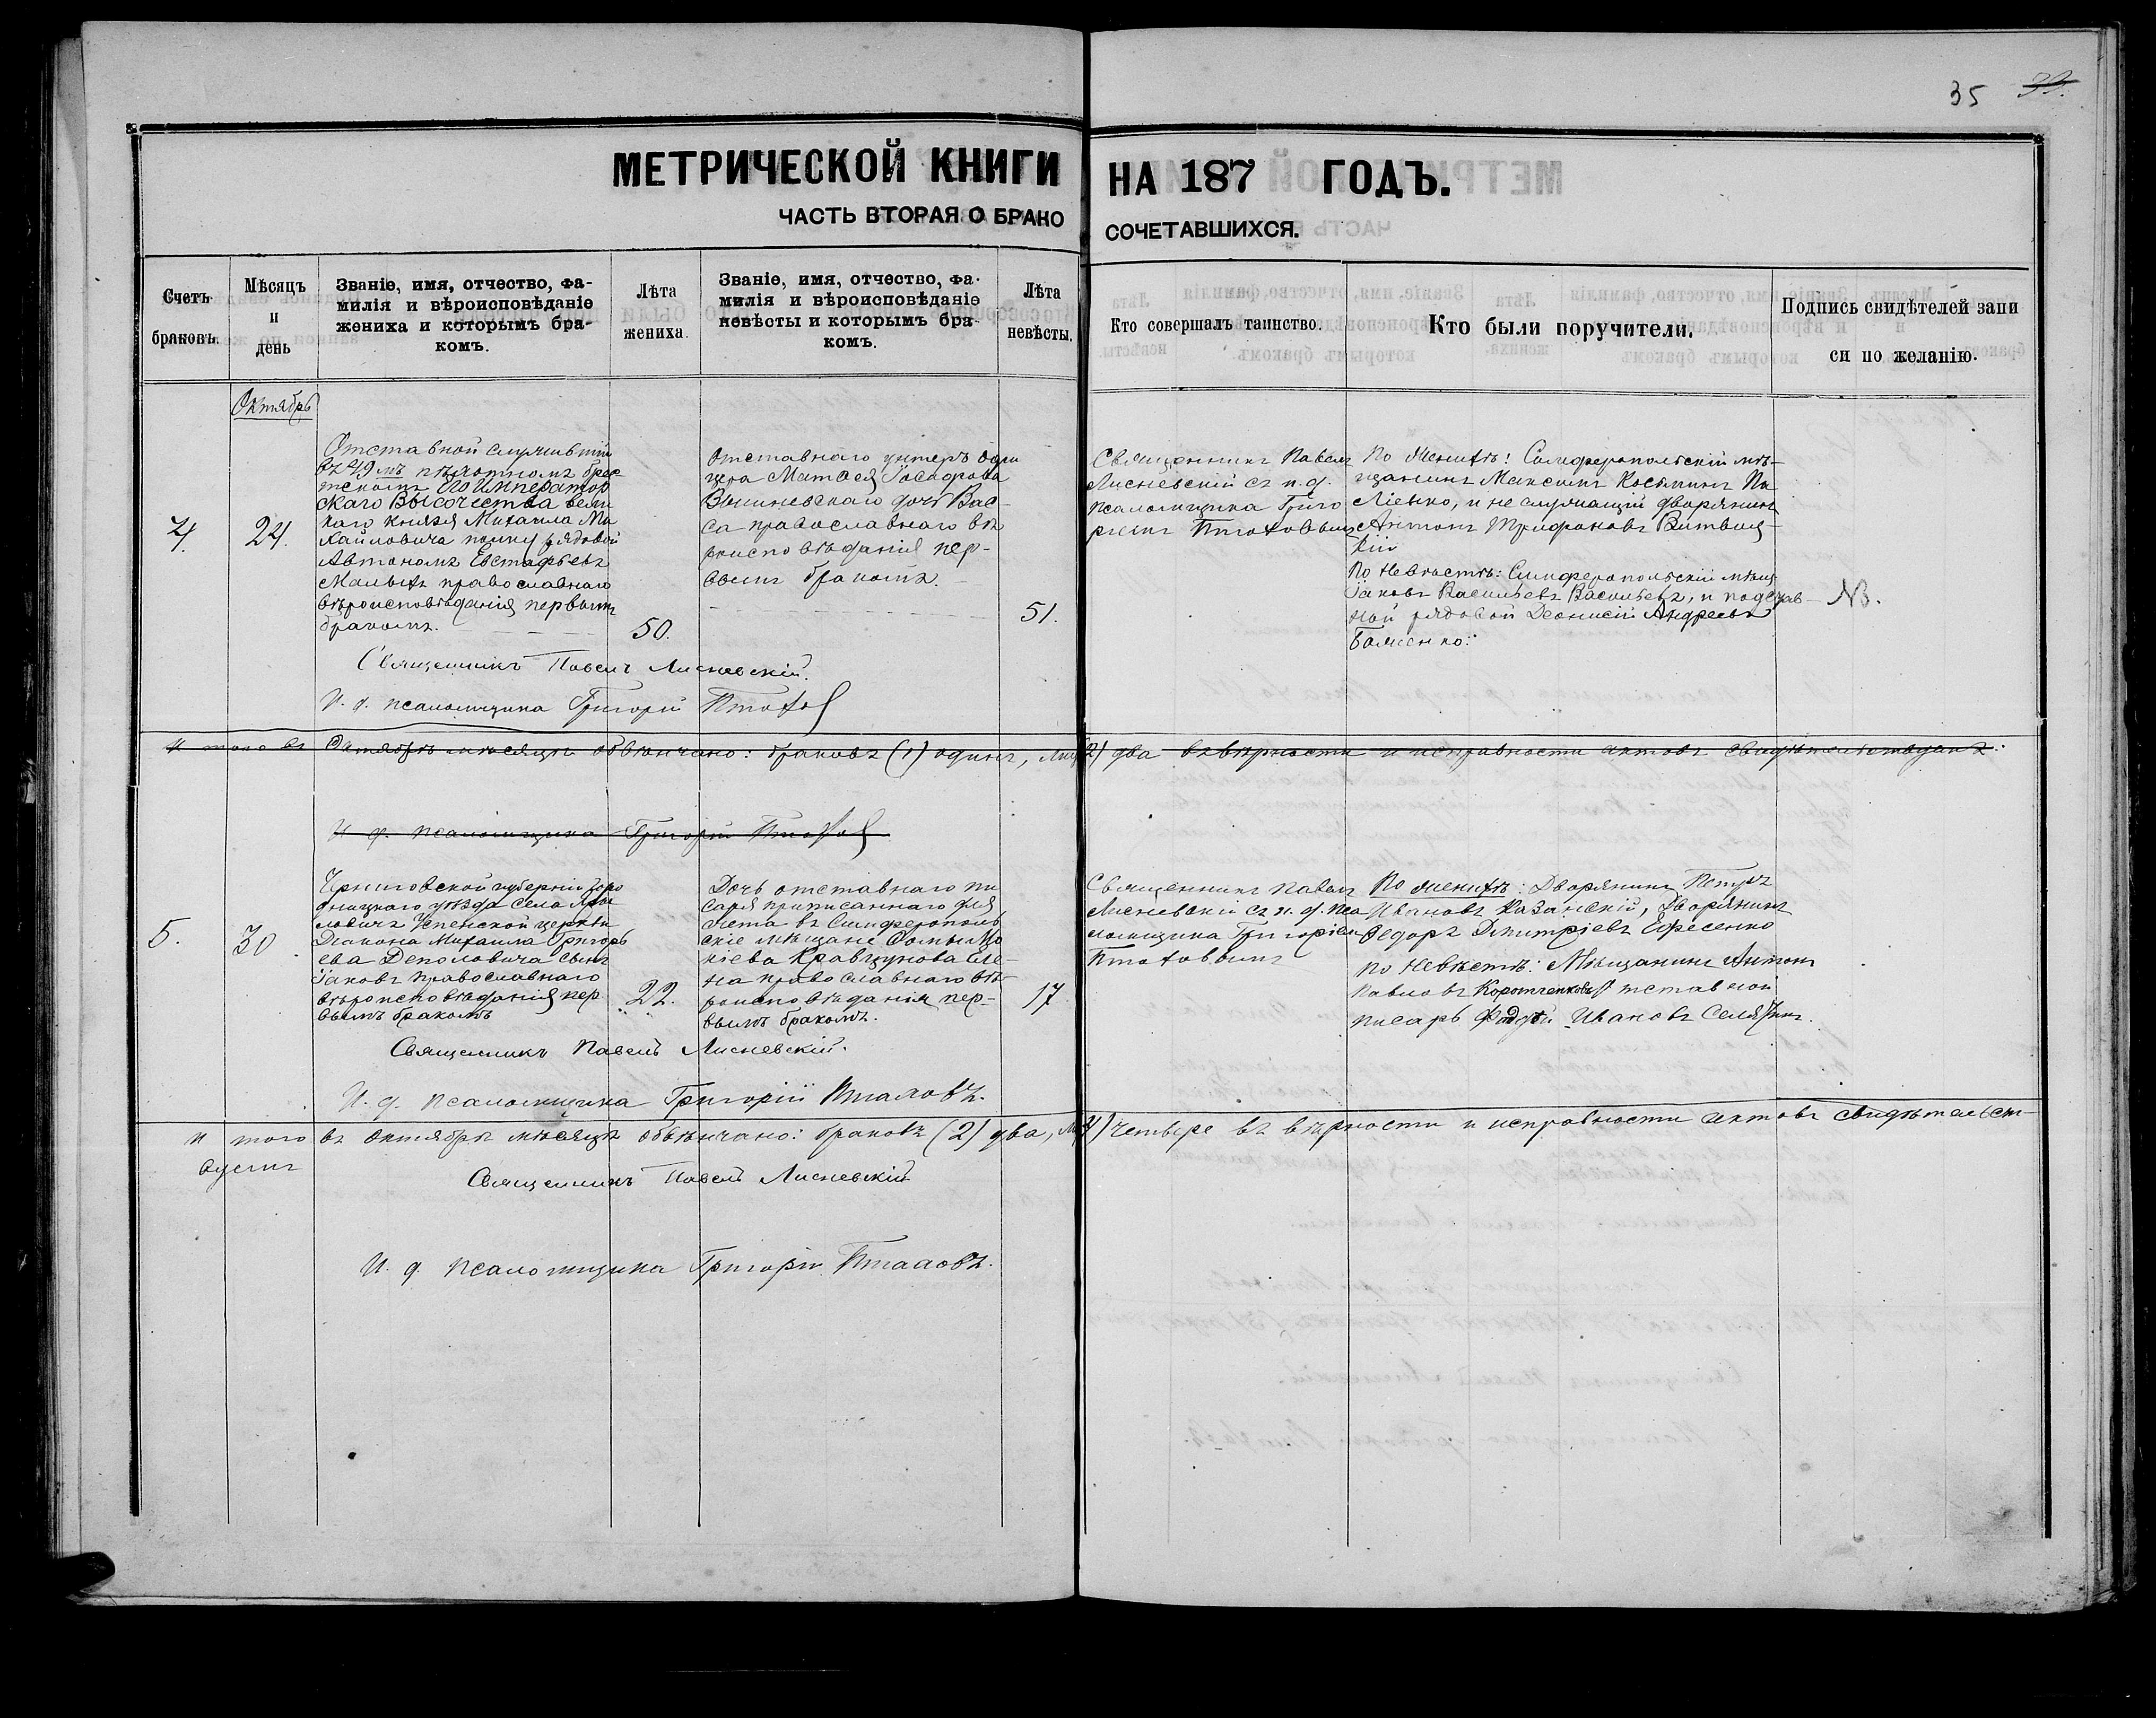 35 39.
МЕТРИЧЕСКОЙ КНИГИ НА 187 ГОДЪ.
ЧАСТЬ ВТОРАЯ О БРАКО СОЧЕТАВШИХСЯ.
Счетъ браковъ.
Мѣсяцъ и день
Званіе, имя, отчество, фа-
милія и вѣроисповѣданіе
жениха и которымъ бра-
комъ.
Лѣта жениха.
Званіе, имя, отчество, фа-
милія и вѣроисповѣданіе
невѣсты и которымъ бра-
комъ.
Лѣта невѣсты.
Кто совершалъ таинство.
Кто были поручители.
Подпись свидѣтелей запи
си по желанію.
Октябрь
4.
24.
Отставной служившій
въ 49мъ пѣхотномъ брес
тскомъ Его Император
скаго Высочества вели
каго князя Михаила Ми
хайловича полку рядовой
Автономъ Евстафьевъ
Малыхъ православнаго
вѣроисповѣданія первымъ
бракомъ.
50.
Отставнаго унтеръ офи
цера Матѳея
Вишневскаго дочь Вас-
са православнаго вѣ
роисповѣданія пер-
вымъ бракомъ.
51.
Священникъ Павелъ
Лисневскій съ и. д.
псаломщика Григо
ріемъ Птаховымъ
По Женихѣ: Симферопольскій мѣ-
щанинъ Максимъ Косьминъ Па
ліенко, и не служащій дворянинъ
Антонъ Трифоновъ Витвиц-
кій
По Невѣстѣ: Симферопольскій мѣщ
Іаковъ Васильевъ Васильевъ, и
рядовой Деонисій Андреевъ
Баліенко:
№.
Священникъ Павелъ Лисневскій.
И. д. псаломщика Григорій Птахов
И того въ Октябрѣ мѣсяцѣ обвѣнчано: браковъ (1) одинъ, лиц 2) два въ вѣрности и исправности актовъ свидѣтельствуемъ:
И. д. псаломщика Григорій Птахов
5.
30.
Черниговской губерніи Горо
дницкаго уѣзда Села
Успенской церкви
Діакона Михаила Григорь
ева Деполовича сынъ
Іаковъ православнаго
вѣроисповѣданія пер
вымъ бракомъ
22.
Дочь отставнаго пи
саря приписаннаго для
счета въ Симферополь
скіе мѣщане
Кравцунова Еле-
на православнаго вѣ-
роисповѣданія пер-
вымъ бракомъ.
17
Священникъ Павелъ
Лисневскій съ и. д. пса
ломщика Григоріемъ
Птаховымъ
По женихѣ: Дворянинъ Петръ
Ивановъ Казанскій, Дворянинъ
Ѳедоръ Дмитріевъ Ефесенко
По Невѣстѣ: Мѣщанинъ Антонъ
Павловъ Коротченковъ отставной
писарь Ивановъ
Священникъ Павелъ Лисневскій.
И. д. псаломщика Григорій Птаховъ.
И того въ октябрѣ мѣсяцѣ обвѣнчано: браковъ (2) два, л 4) четыре въ вѣрности и исправности актовъ свидѣтельст-
вуемъ
Священникъ Павелъ Лисневскій
И. д. псаломщика Григорій Птаховъ.